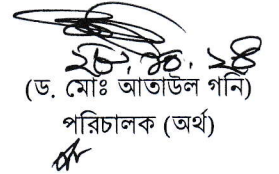 ২৮.১০.২৪
(ড. মোঃ আতাউল গনি)
পরিচালক (অর্থ)